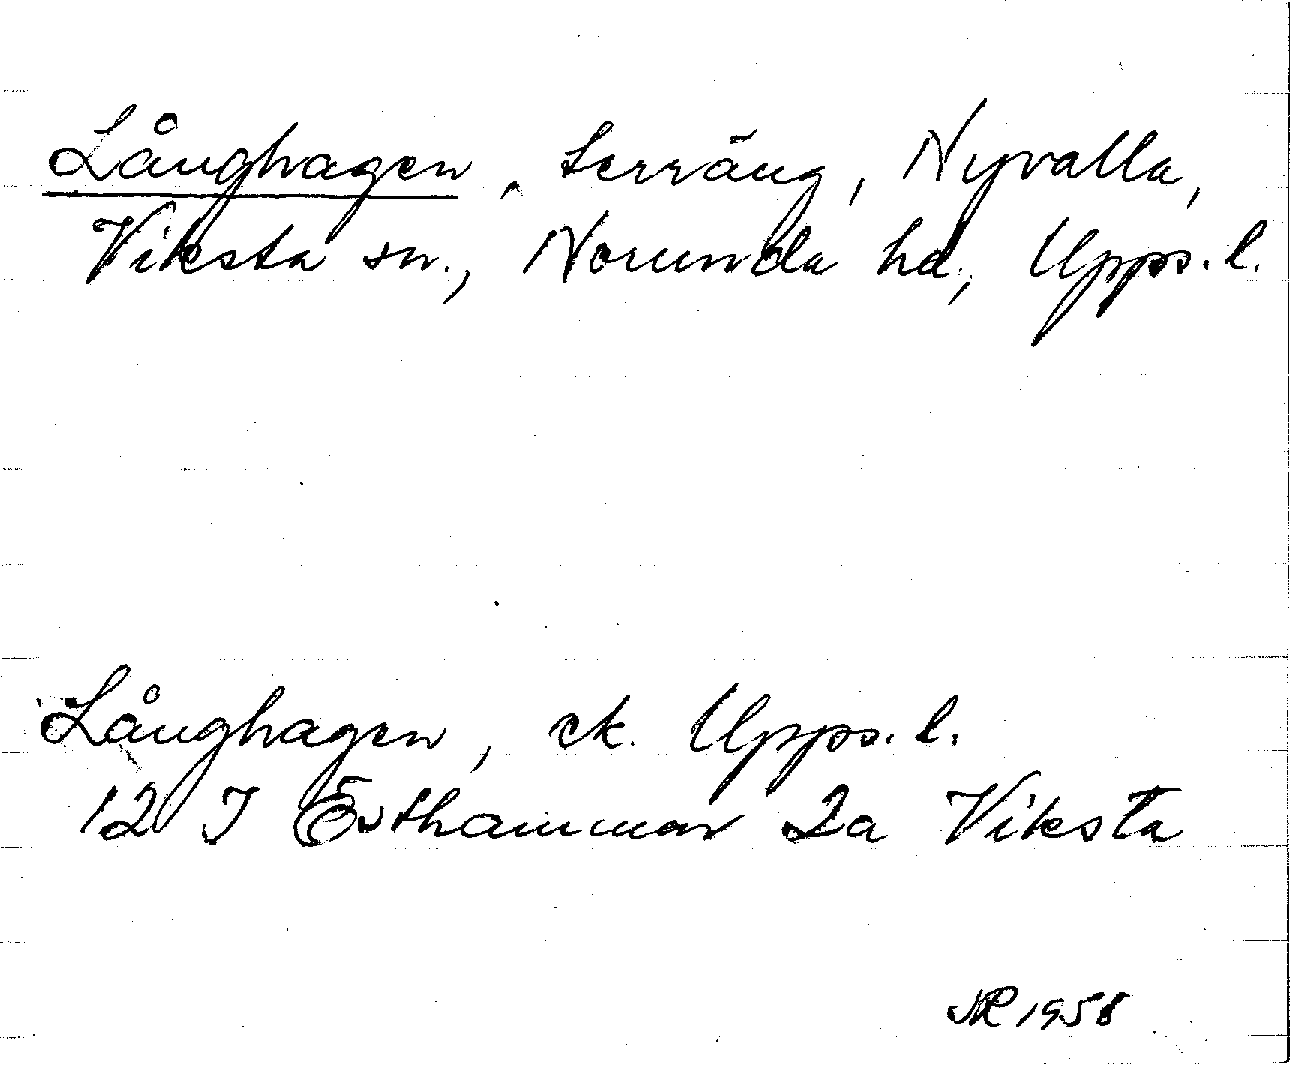 Långhagen, terräng, Nyvalla,
Viksta sn., Norunda hd., Upps. l.
Långhagen, ek. Upps. l.
12 I Östhammar 2a Viksta
NR 1958